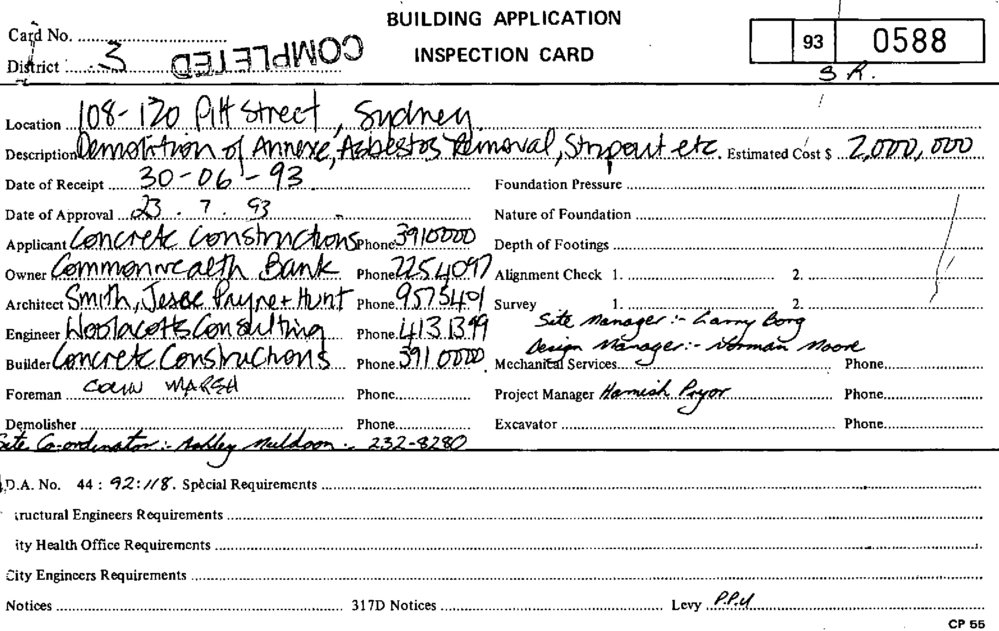 BUILDING APPLICATION
INSPECTION CARD
Card No.
District 3 COMPLETED
93 0588
S R.
Location 108-120 Pitt Street, Sydney.
Description Demolition of Annexe, Asbestos Removal, Stripout etc. Estimated Cost $ 2,000,000
Date of Receipt 30-06-93 Foundation Pressure
Date of Approval 23. 7. 93 Nature of Foundation
Applicant Concrete Constructions Phone 3910000 Depth of Footings
Owner Commonwealth Bank Phone 2254097 Alignment Check 1. 2.
Architect Smith, Jesse Payne + Hunt Phone 9575401 Survey 1. 2.
Site Manager:- Larry Borg
Engineer Woolacotts Consulting Phone 4131399
Design Manager:- Norman Moore
Builder Concrete Constructions Phone 3910000 Mechanical Services Phone
Foreman COLIN MARSH Phone Project Manager Hamish Pryor Phone
Demolisher Phone Excavator Phone
Site Co-ordinator:- Ashley Muldoon - 232-8280
D.A. No. 44: 92:118. Special Requirements
ructural Engineers Requirements
ity Health Office Requirements
City Engineers Requirements
Notices 317D Notices Levy
CP 55